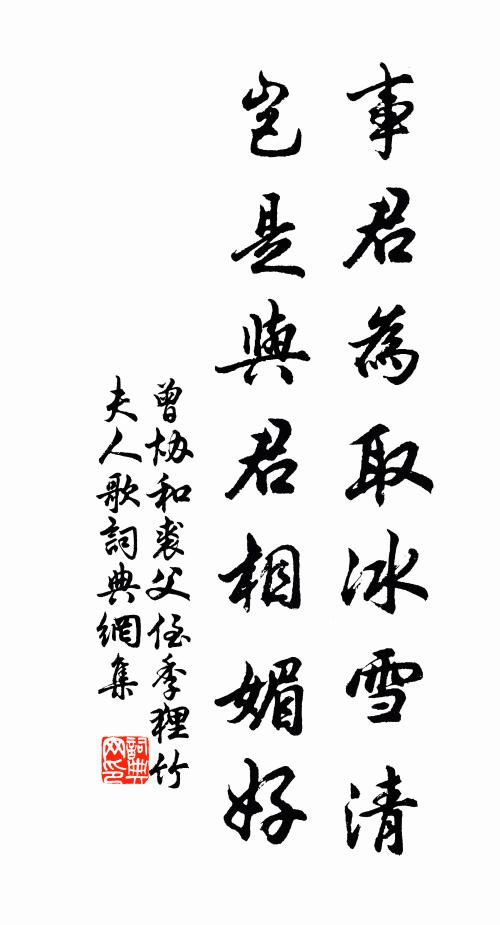 事君為取冰雪清
豈是與君相媚好
曾协和裘父侄季狸竹
夫人歌詞典網集
詞典網印